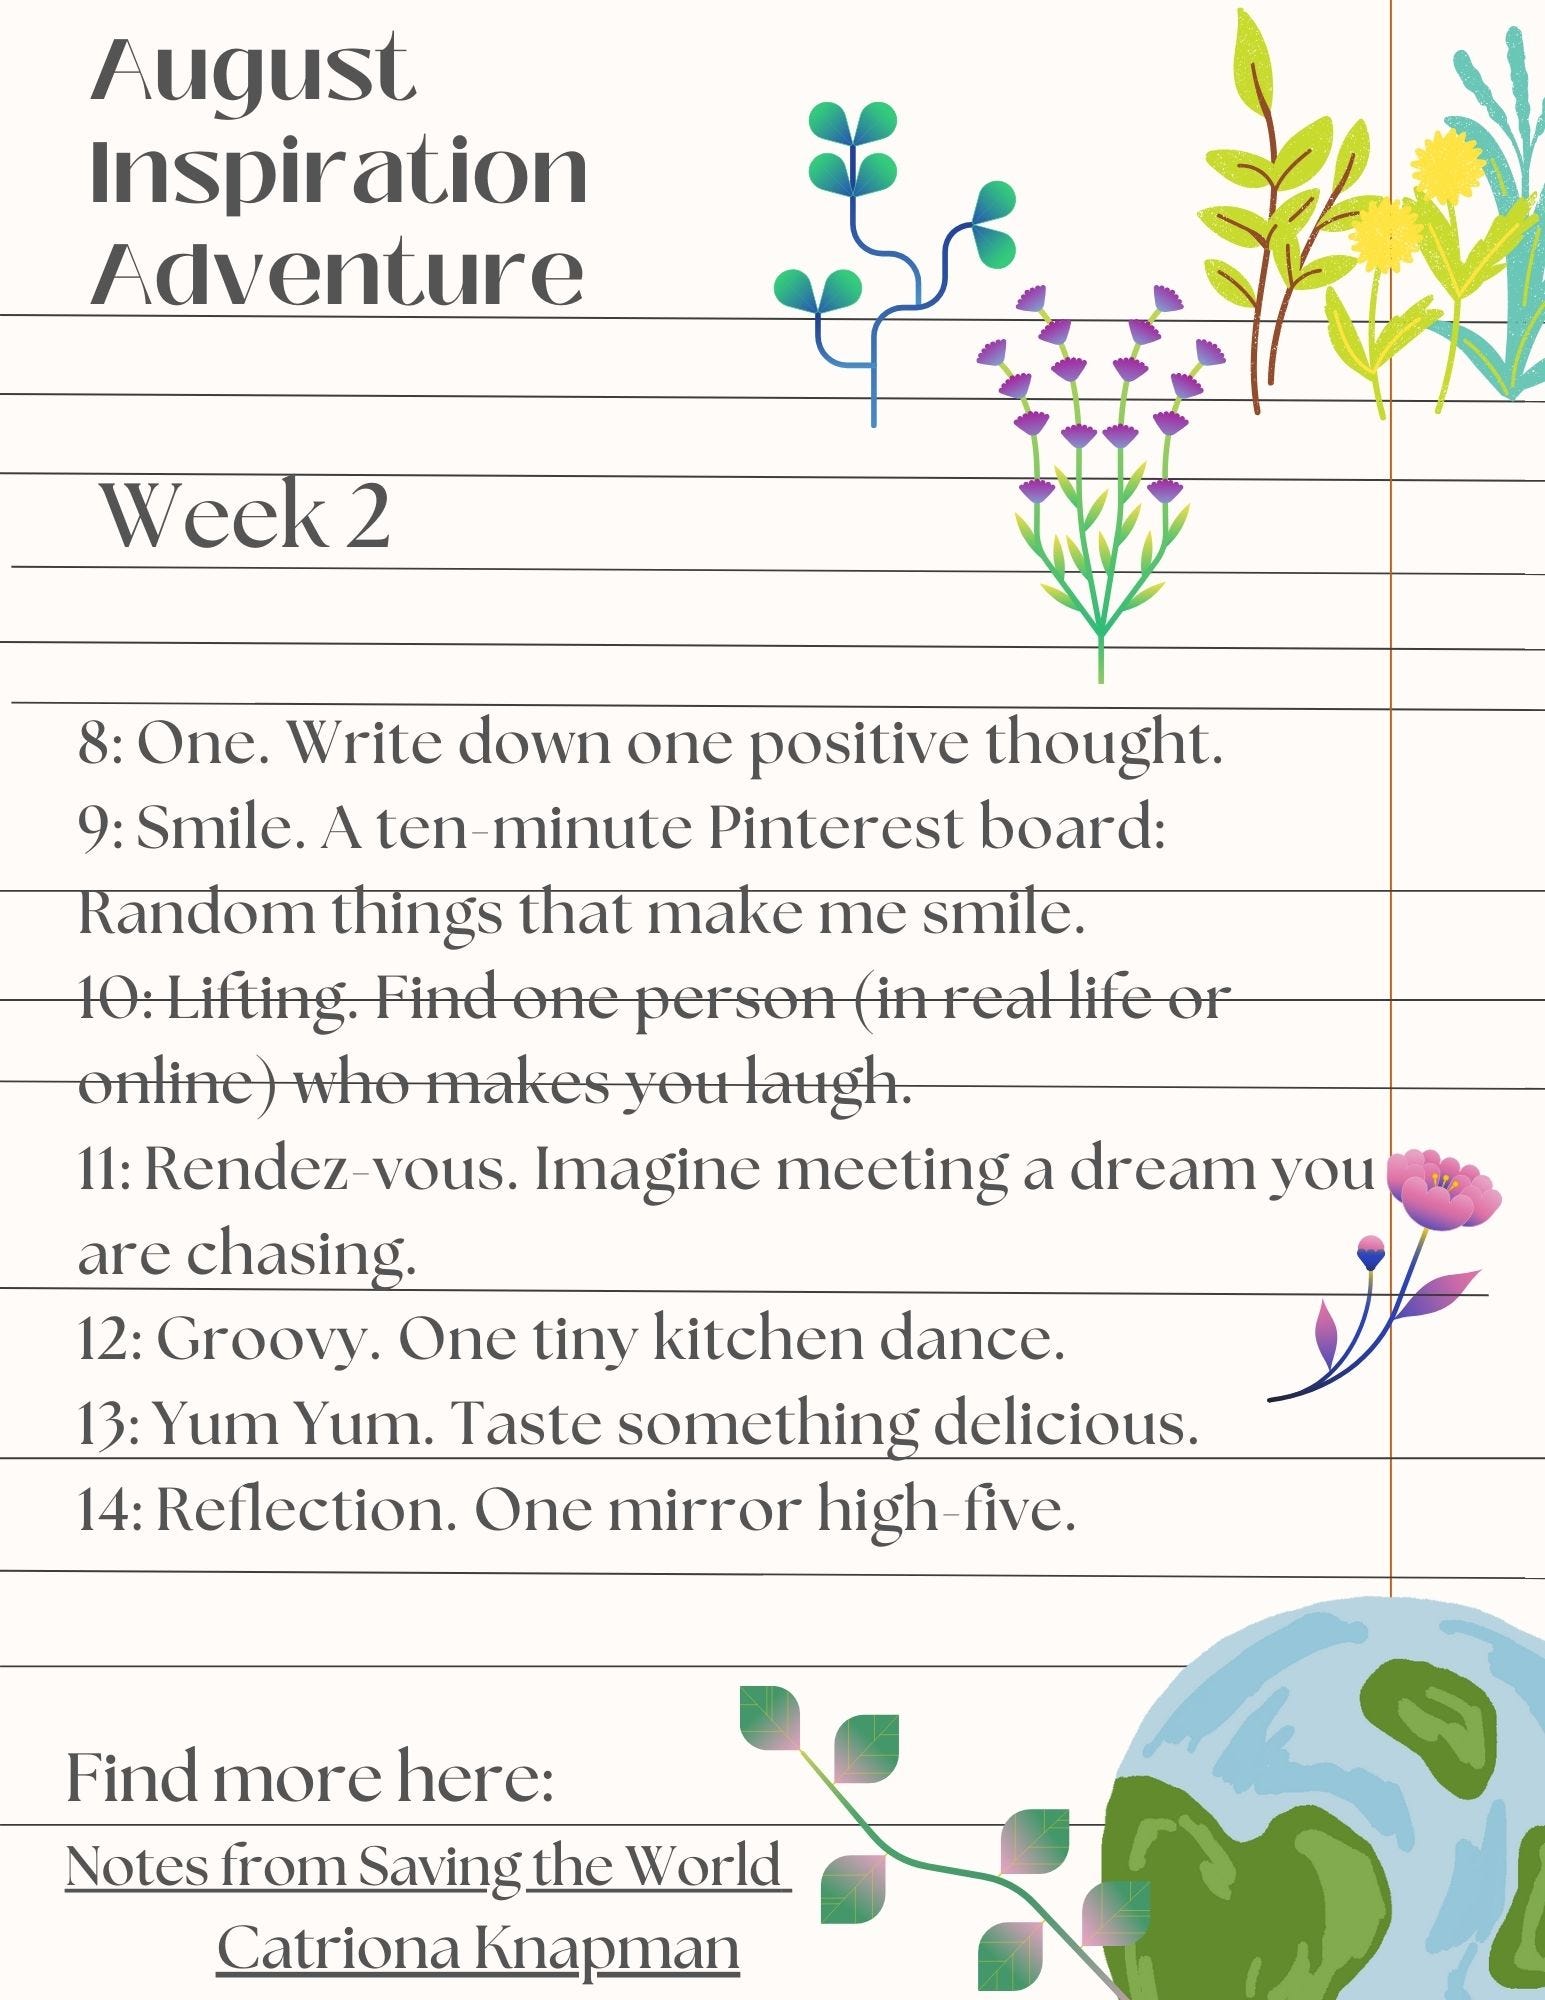 August
Inspiration
Adventure
Week 2
8: One. Write down one positive thought.
9: Smile. A ten-minute Pinterest board:
Random things that make me smile.
10: Lifting. Find one person (in real life or
online) who makes you laugh.
11: Rendez-vous. Imagine meeting a dream you
are chasing.
12: Groovy. One tiny kitchen dance.
13: Yum Yum. Taste something delicious.
14: Reflection. One mirror high-five.
Find more here:
Notes from Saving the World
Catriona Knapman